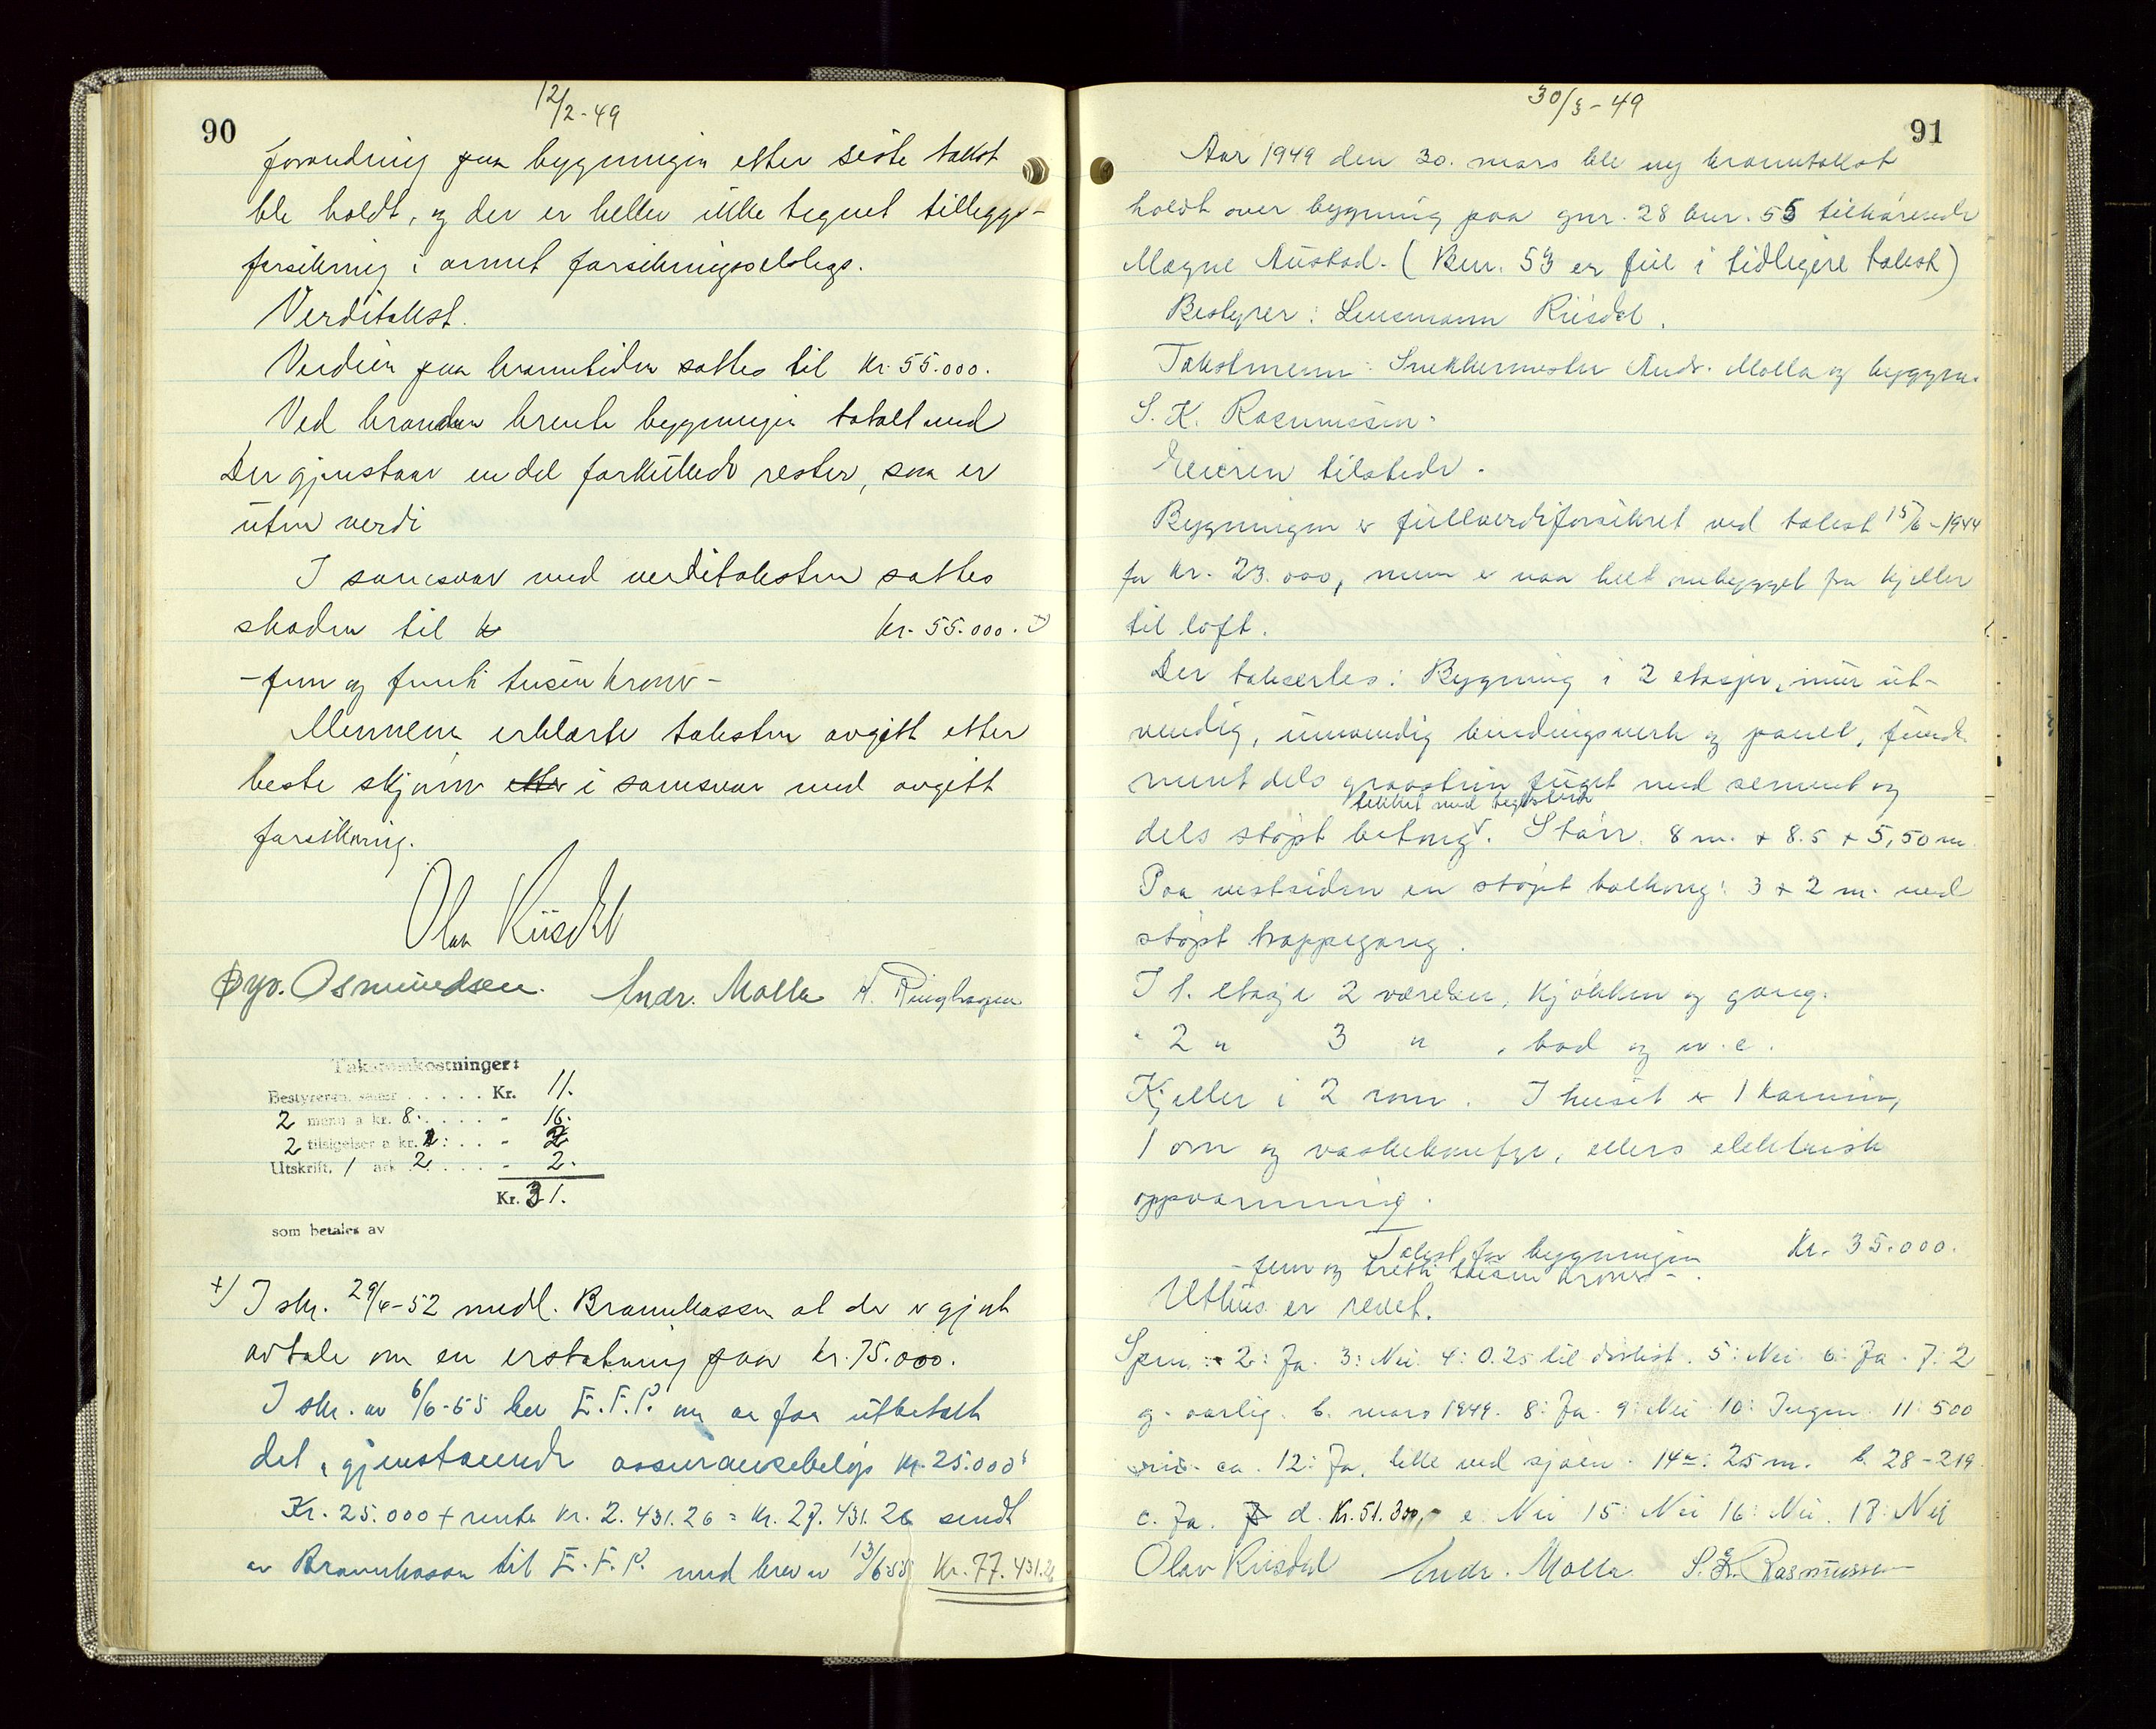 90
12/2-49
forandring paa bygningen etter siste takst
ble holdt, og der er heller ikke tegnet tilleggs-
forsikring i annet forsikringsselskap.
Verditakst.
Verdien paa branntiden sattes til Kr. 55.000.
Ved branden brente bygningen totalt ned
Der gjenstaar en del forkullede rester, som er
uten verdi
I samsvar med verditaksten sattes
skaden til k Kr. 55.000. +)
- fem og femti tusen kroner -
Mennene erklærte taksten avgitt etter
beste skjønn etter i samsvar med avgitt
forsikring.
Olav Riisdal
Øyv. Osmundsen. Andr. Molla H. Ringhagen
Takstomkostninger:
Bestyreren, samer . . . . . Kr. 11.
2 menn a kr. 8. . . . . - 16.
2 tilsigelser a kr. 1: . . - 2
Utskrift, 1 ark 2 . . . . - 2.
Kr. 31.
som betales av
+) I skr. 29/4-52 medl. Brannkassen at der er gjort
avtale om en erstatning paa kr. 75.000.
I skr. av 6/6-55 ber E.F.P. om aa faa utbetalt
det gjenstaaende assuransebeløp kr. 25.000
Kr. 25.000 + rente kr. 2.431.26 = kr. 27.431.26 sendt
av Brannkassen til E.F.P. med brev av 13/6-55 Kr. 77.431.26
30/3-49
91
Aar 1949 den 30. mars ble ny branntakst
holdt over bygning paa gnr. 28 bnr. 55 tilhørende
Magne Austad. (Bnr. 53 er feil i tidligere takst)
Bestyrer: Lensmann Riisdal.
Takstmenn: Snekkermester Andr. Molla og byggm.
S. K. Rasmussen.
Eieren tilstede.
Bygningen er fullverdiforsikret ved takst 15/6-1944
for kr. 23.000, men er naa helt ombygget fra kjeller
til loft.
Der takseertes: Bygning i 2 etasjer, mur ut-
vendig, innvendig bindingsverk og panel, funda-
ment dels graastein fuget med sement og
tekket med teglstein
dels støpt betong v. Større. 8 m. + 8.5 + 5,50 m
Paa vestsiden en støpt balkong: 3 + 2 m. med
støpt trappegang.
I 1. etasje 2 værelser, kjøkken og gang.
" 2 " 3 " , bad og w.c.
Kjeller i 2 rom. I huset er 1 kamin,
1 ovn og vaskekomfyr, ellers elektrisk
oppvarming.
Takst for bygningen Kr. 35.000.
- fem og tretti tusen kroner -.
Uthus er revet.
Spm: 2: Ja. 3: Nei 4: 0.25 til dårligst. 5: Nei 6: Ja. 7: 2
g. aarlig. b. mars 1949. 8: Ja. 9: Nei 10: Ingen. 11: 500
ca. 12: Ja, like ved sjøen. 14a: 25 m. b. 28-219.
c. Ja. d. Kr. 51.300,- e. Nei 15: Nei 16: Nei. 18: Nei
Olav Riisdal Andr. Molla. S. K. Rasmussen